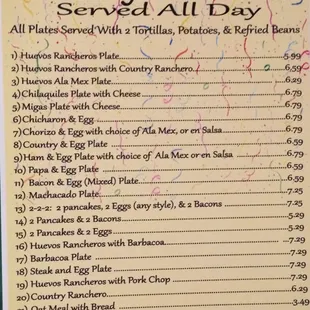 Served All Day
All Plates Served With 2 Tortillas, Potatoes, & Refried Beans
1) Huevos Rancheros Plate 5.99
2) Huevos Rancheros with Country Ranchero 6.59
3) Huevos Ala Mex Plate 6.79
4) Chilaquiles Plate with Cheese 6.79
5) Migas Plate with Cheese 6.79
6) Chicharon & Egg 6.79
7) Chorizo & Egg with choice of Ala Mex, or en Salsa 6.79
8) Country & Egg Plate 6.59
9) Ham & Egg Plate with choice of Ala Mex or en Salsa 6.79
10) Papa & Egg Plate 6.59
11) Bacon & Egg (Mixed) Plate 6.59
12) Machacado Plate 7.25
13) 2-2-2: 2 pancakes, 2 Eggs (any style), & 2 Bacons 7.25
14) 2 Pancakes & 2 Bacons 5.29
15) 2 Pancakes & 2 Eggs 5.29
16) Huevos Rancheros with Barbacoa 7.29
17) Barbacoa Plate 7.29
18) Steak and Egg Plate 7.29
19) Huevos Rancheros with Pork Chop 7.29
20) Country Ranchero 6.29
Oat Meal with Bread 3.49